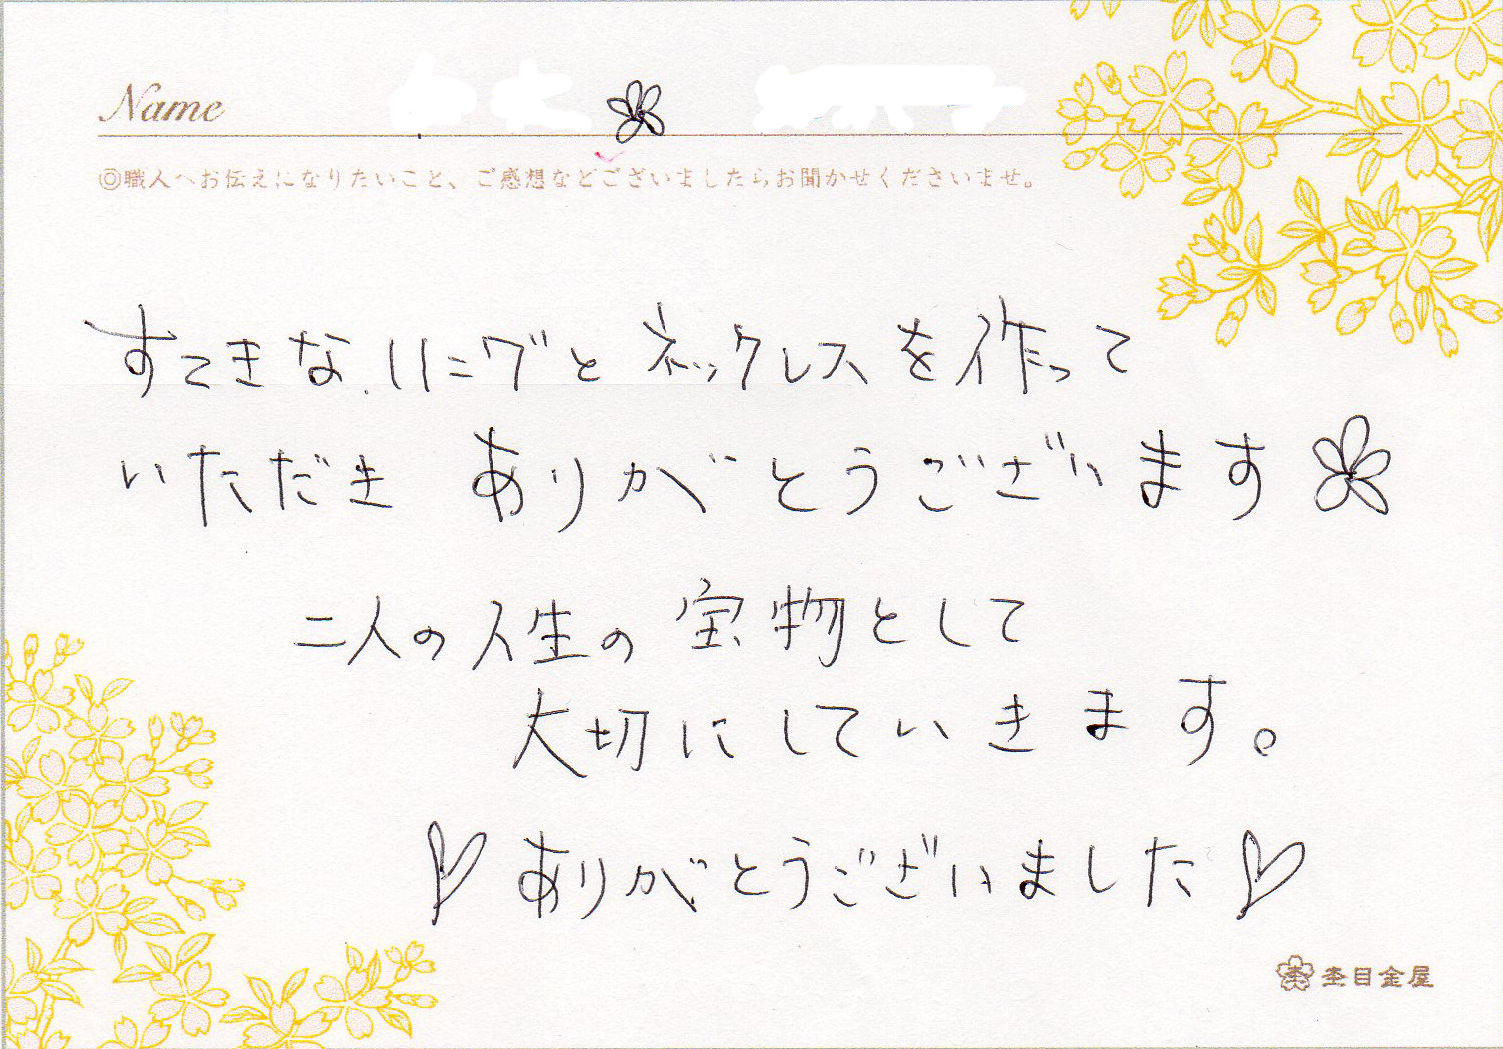 Name
◎職人へお伝えになりたいこと、ご感想などございましたらお聞かせくださいませ。
すてきなリングとネックレスを作って
いただき ありがとうございます
二人の人生の宝物として
大切にしていきます。
♡ありがとうございました♡
杢目金屋